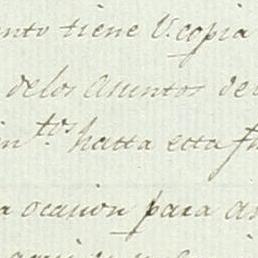 ento tiene V. copia
delos Asuntos de
in.tos hasta esta f
a ocasion para a